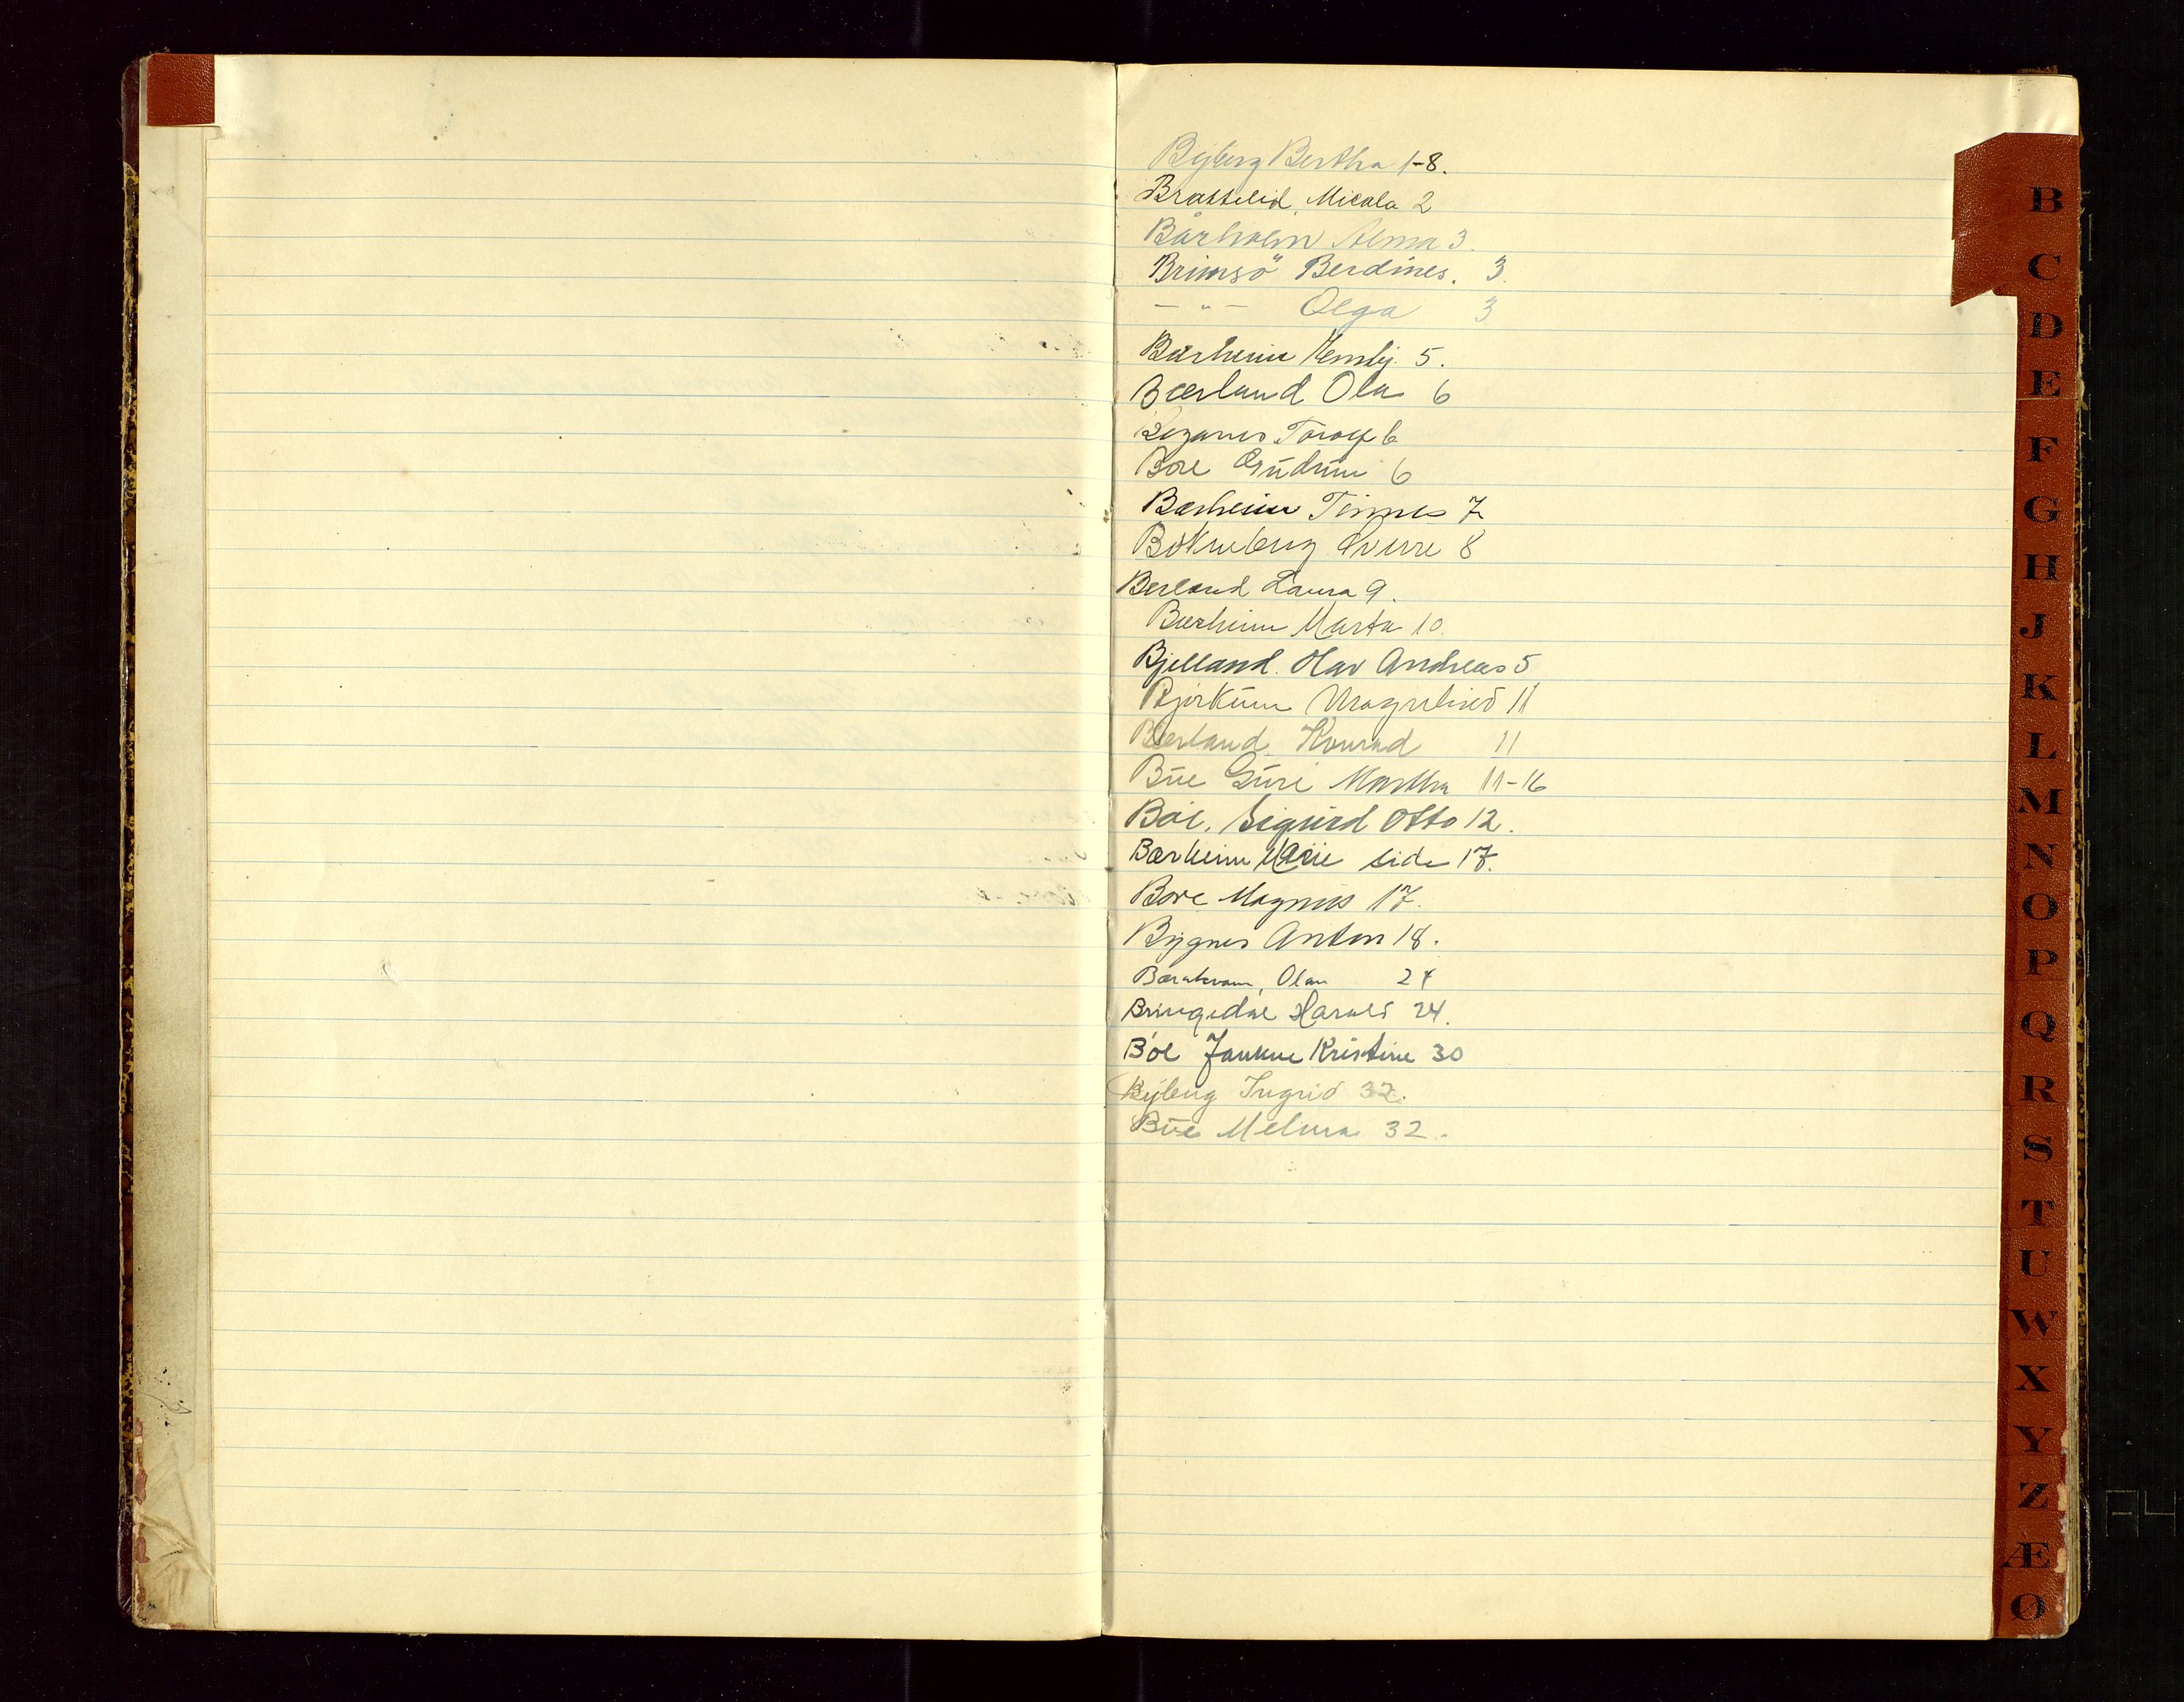 Byberg Bertha 1-8.
Brattelid, Micala 2
Bårholm Alma 3.
Brimsö Berdines. 3
— " — Olga 3
Bærheim 5.
Bærland Ola 6
6
Bore Gudrun 6
Bærheim Tinnes 7
Bokneberg Sverre 8
Berland Laura 9.
Bærheim Marta 10.
Bjelland. Olav Andreas 5
Bjorkum Magnhild 11
Bærland Konrad 11
Bue Guri Martha 11-16
Böe. Sigurd Otto 12.
Bærheim Marie side 17.
Bore Magnus 17.
Bygnes Anton 18.
Olav 24
Bringedal Harald 24.
Böe Kristine 30
Byberg Ingrid 32.
Bue Melina 32.
B
C
D
E
F
G
H
J
K
L
M
N
O
P
Q
R
S
T
U
W
X
Y
Z
Æ
Ø